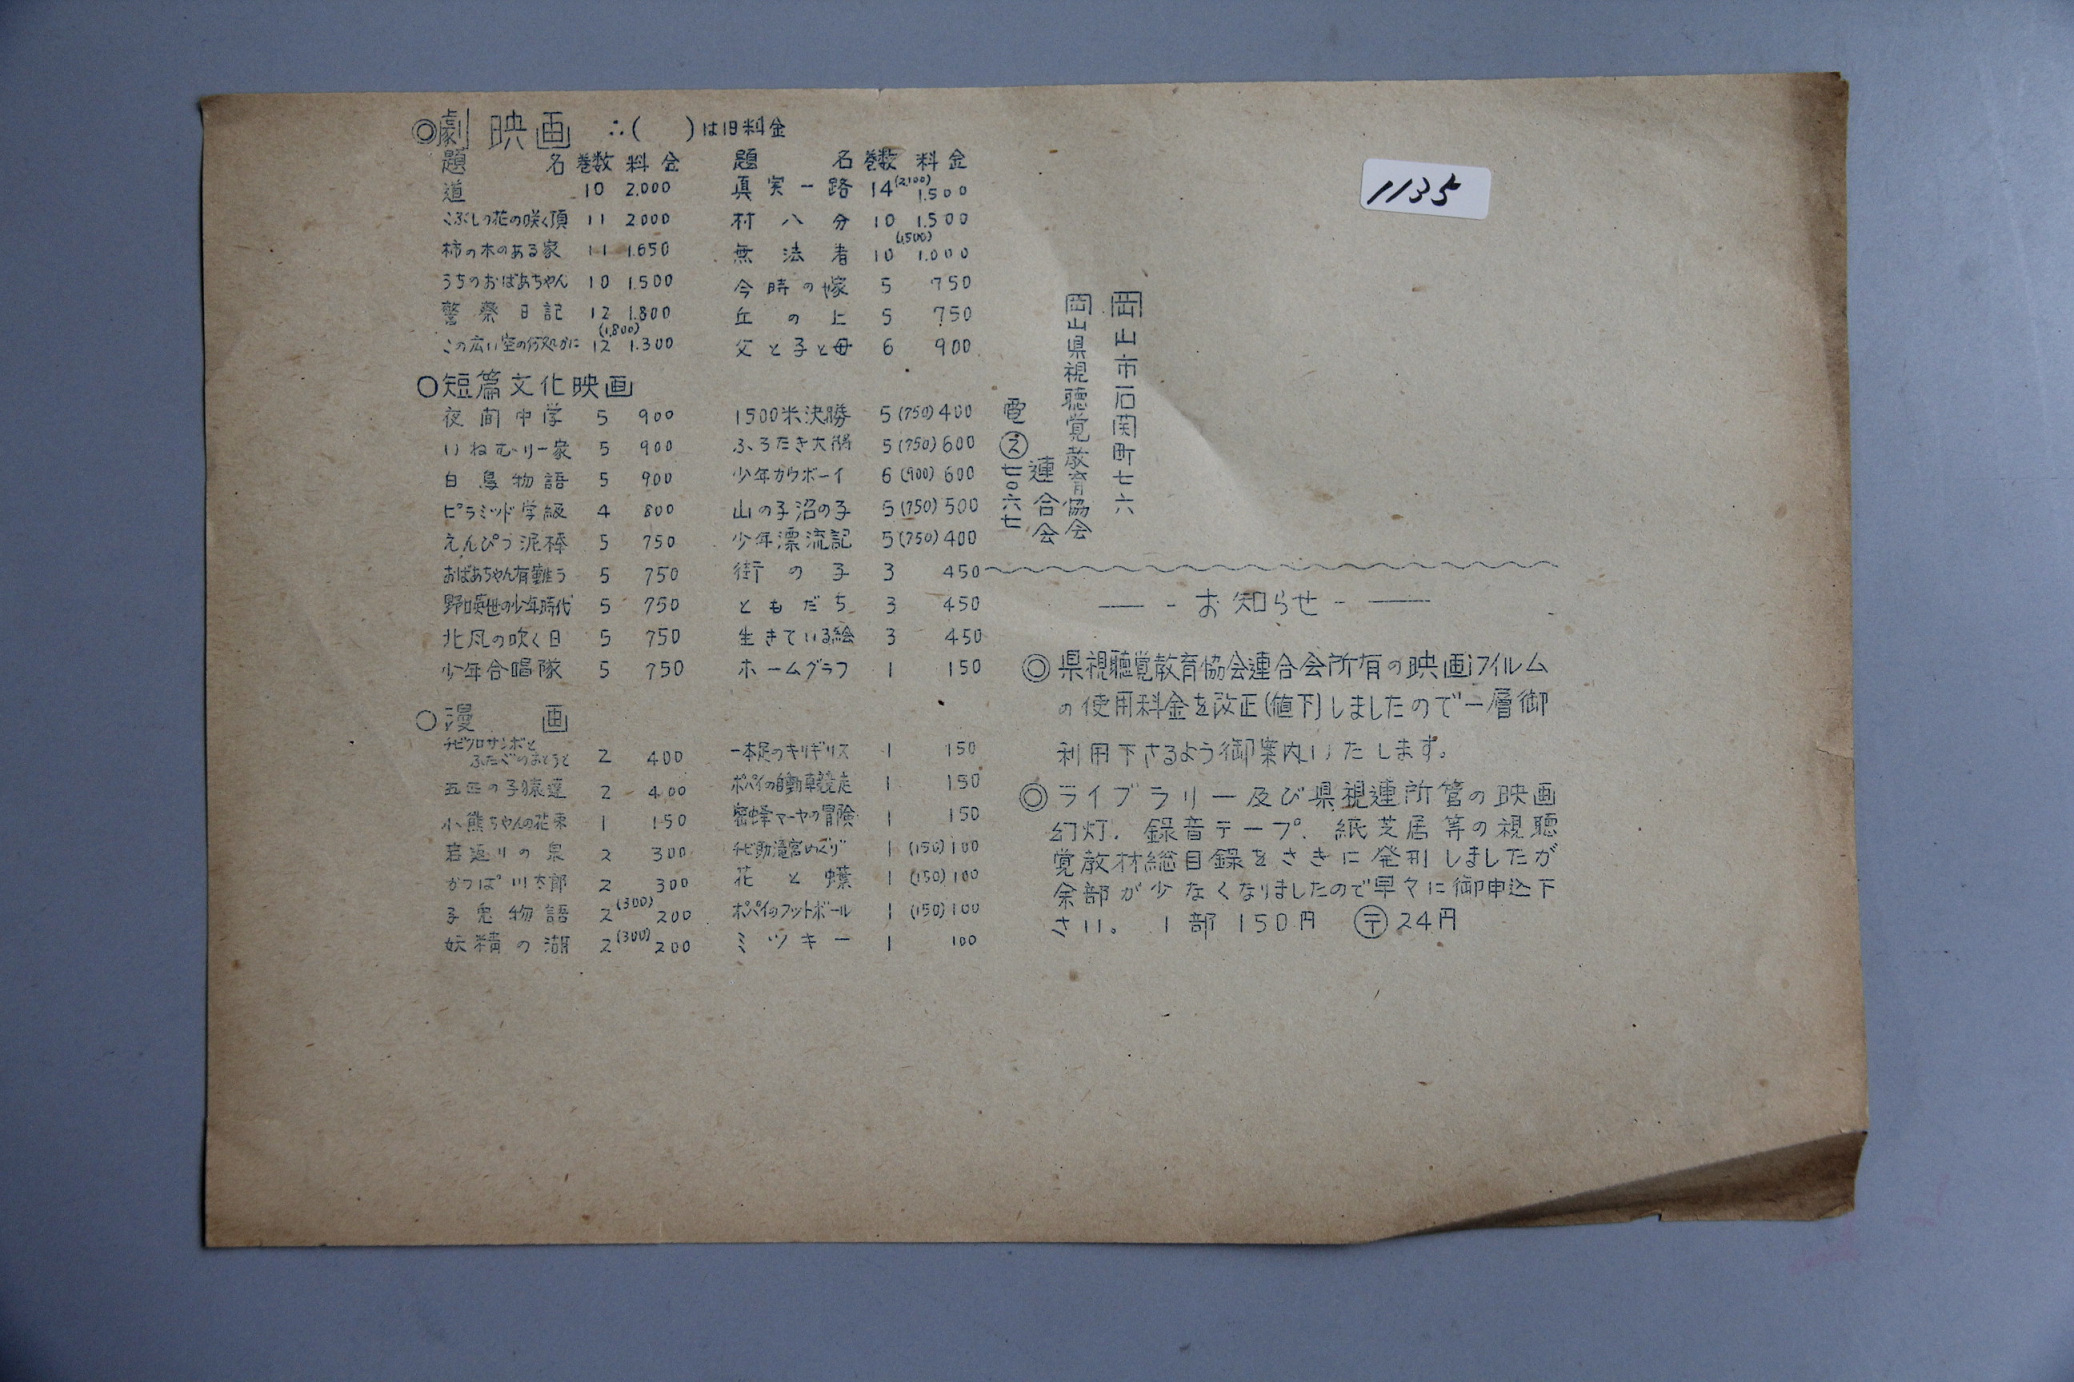 ◎劇映画 ∴( )は旧料金
題名 巻数 料金 題名 巻数 料金
道 10 2.000 真実一路 14 (2,100) 1.500
こぶしの花の咲く頃 11 2.000 村八分 10 1.500
柿の木のある家 11 1.650 無法者 10 (1,500) 1.000
うちのおばあちゃん 10 1.500 今時の嫁 5 750
警察日記 12 1.800 丘の上 5 750
この広い空の何処かに 12 (1,800) 1.300 父と子と母 6 900
○短篇文化映画
夜間中学 5 900 1500米決勝 5 (750) 400
いねむり一家 5 900 ふろたき大将 5 (750) 600
白鳥物語 5 900 少年カウボーイ 6 (900) 600
ピラミッド学級 4 800 山の子沼の子 5 (750) 500
えんぴつ泥棒 5 750 少年漂流記 5 (750) 400
おばあちゃん有難う 5 750 街の子 3 450
野口英世の少年時代 5 750 ともだち 3 450
北風の吹く日 5 750 生きている絵 3 450
少年合唱隊 5 750 ホームグラフ 1 150
○漫画
チビクロサンボと
ふたごのおとうと 2 400 一本足のキリギリス 1 150
五匹の子猿達 2 400 ポパイの自動車競走 1 150
小熊ちゃんの花束 1 150 密蜂マーヤの冒険 1 150
若返りの泉 2 300 チビ助滝宮めぐり 1 (150) 100
かっぱ川太郎 2 300 花と蝶 1 (150) 100
子兎物語 2 (300) 200 ポパイのフットボール 1 (150) 100
妖精の湖 2 (300) 200 ミツキー 1 100
1135
岡山市石関町七六
岡山県視聴覚教育協会
連合会
電②七〇六七
お知らせ
◎県視聴覚教育協会連合会所有の映画フイルム
の使用料金を改正(値下)しましたので一層御
利用下さるよう御案内いたします。
◎ライブラリー及び県視連所管の映画
幻灯、録音テープ、紙芝居等の視聴
覚教材総目録をさきに発刊しましたが
余部が少なくなりましたので早々に御申込下
さい。 1部150円 〒24円